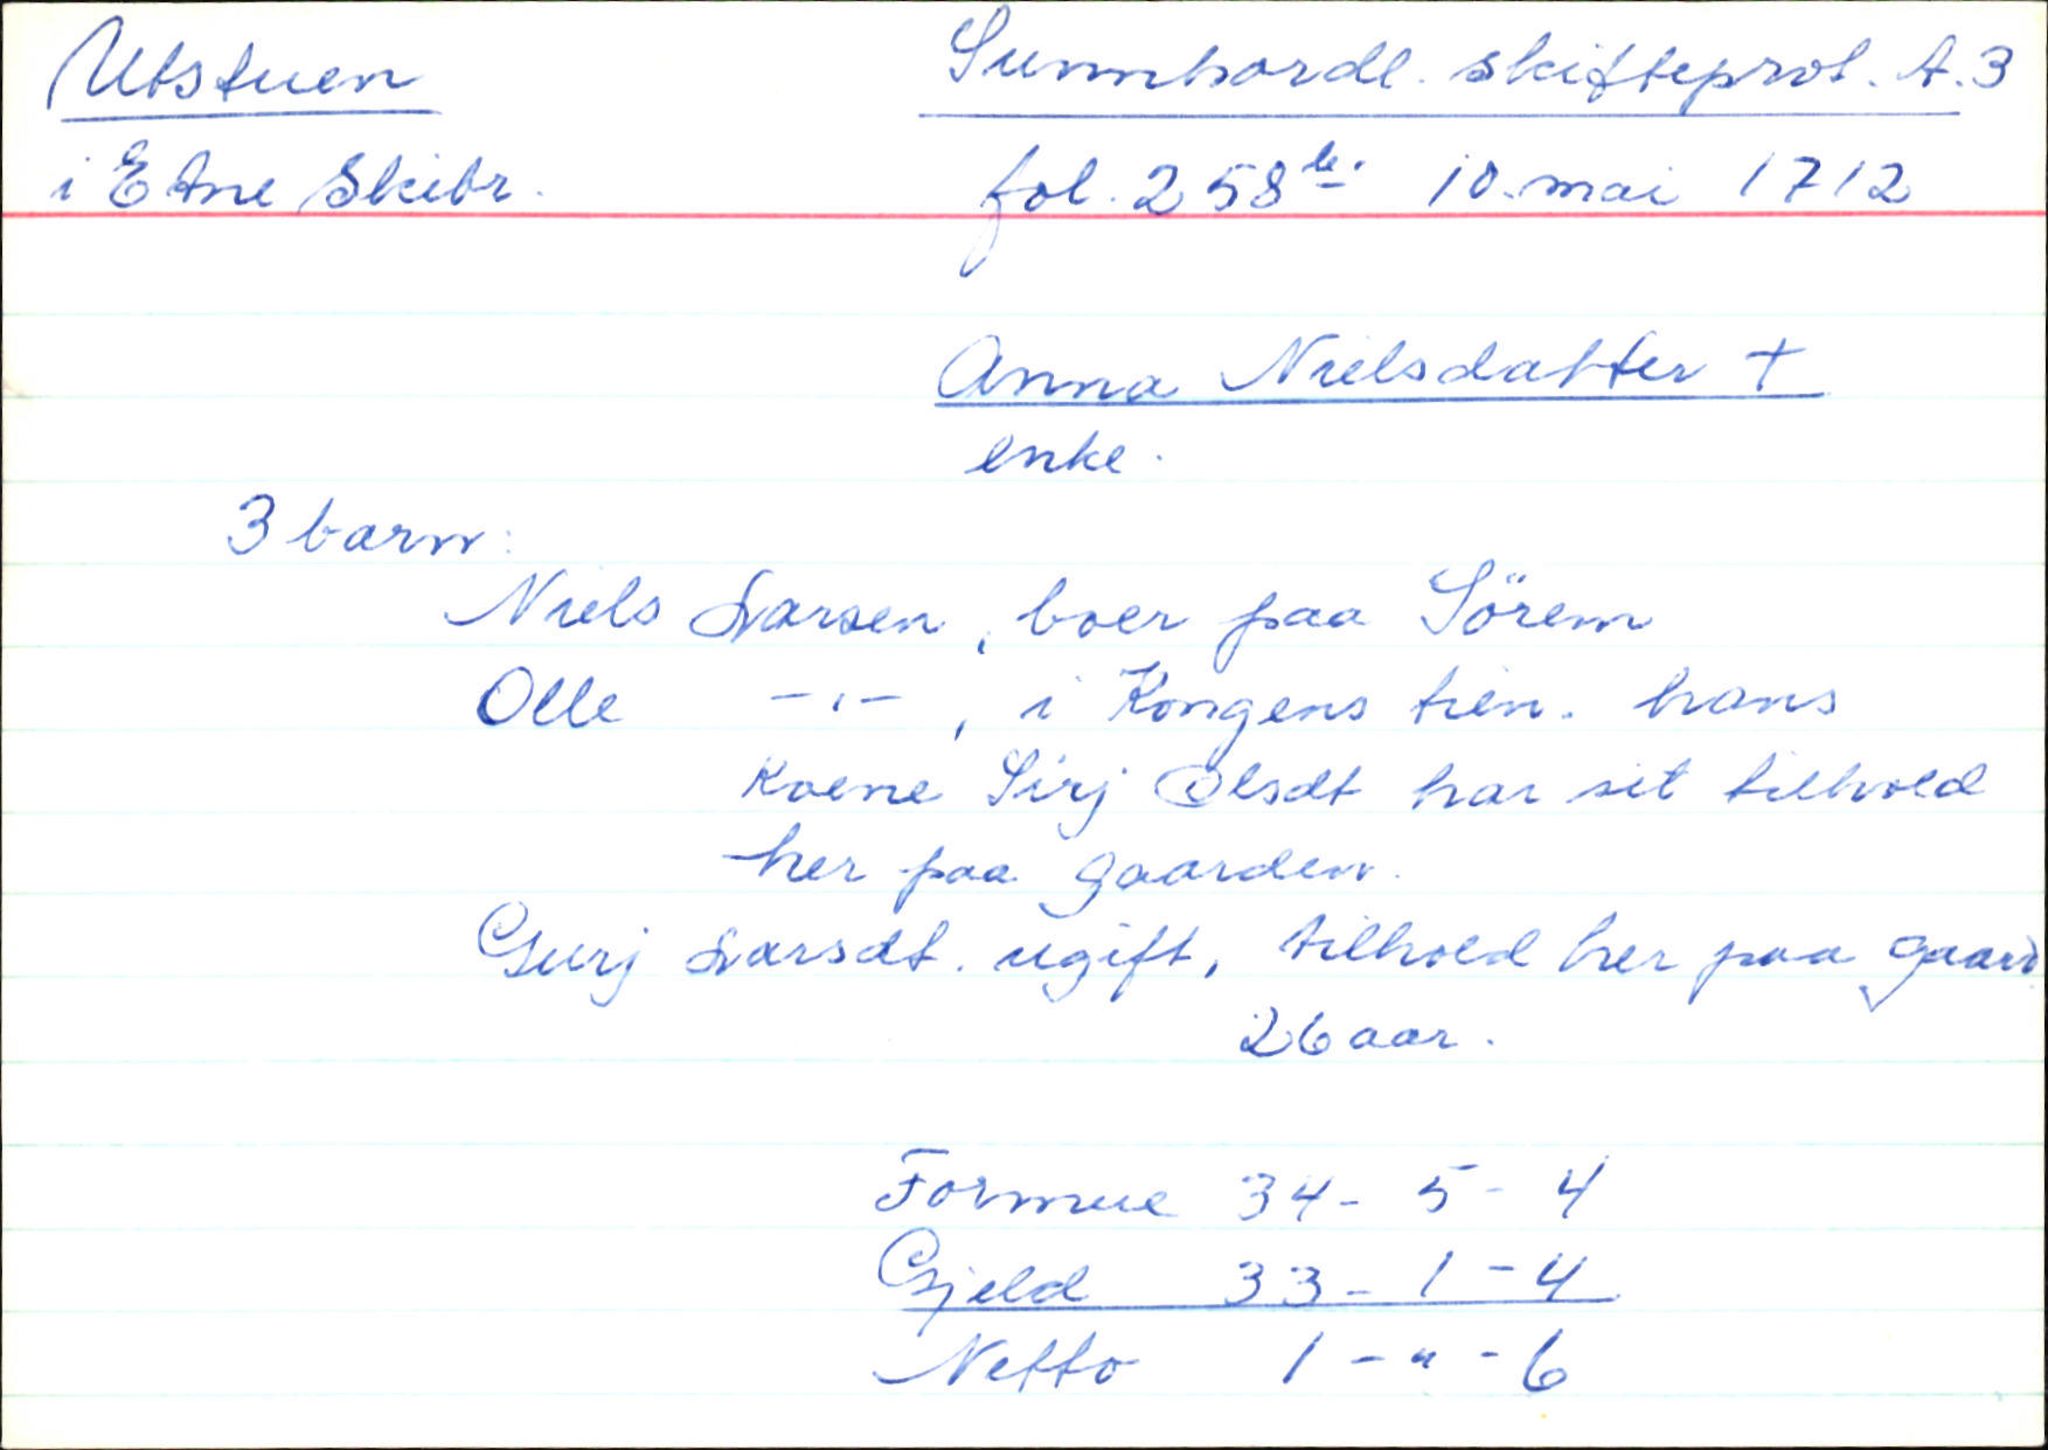 Utstuen
Sunnhordl. skifteprot. A.3
i Etne Skibr.
fol. 258 b. 10. mai 1712
Anna Nielsdatter +
enke.
3 barn:
Niels Larsen, boer paa Sörem
Olle -"-, i Kongens tien. hans
Koene Sirj Olsdt har sit tilhold
her paa gaarden.
Gurj Larsdt. ugift, tilhold her paa gaard
26 aar.
Formue 34 - 5 - 4
Gjeld 33 - 1 - 4
Netto 1 - " - 6